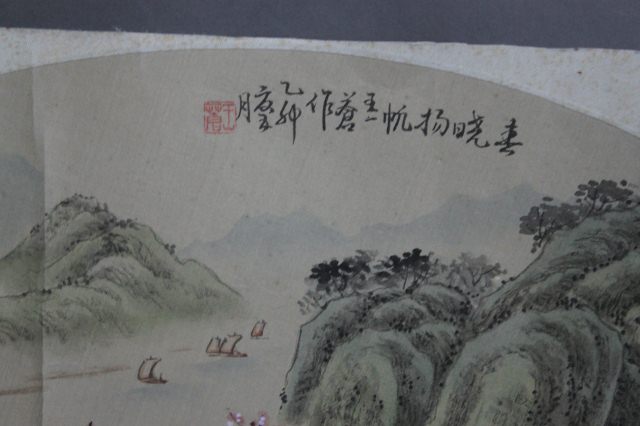 春晓扬帆王一蒼作乙卯月